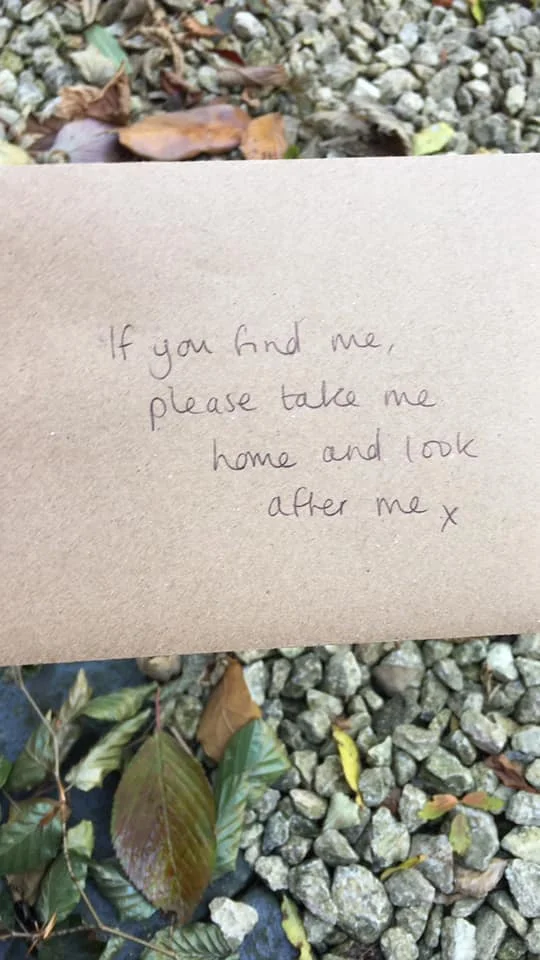 If you find me,
please take me
home and look
after me x